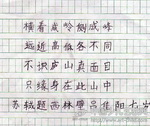 横看成岭侧成峰
远近高低各不同
不识庐山真面目
只缘身在此山中
苏轼题西林壁吕佳阳七岁